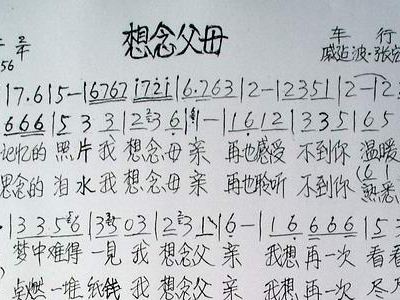 想念父母
2
车 行
56
戚跕波·张
|17.6|5-|6767 i72i|6·763|2-|2351|2-|12
666|5 3 3|2 3 6|1-|1612|335|65
记忆的 照片 我 想念母 亲 再也感受 不到你 温暖
思念的 泪水 我 想念母 亲 再也聆听 不到你 熟悉
·|3356|3 03|2 3 1|6-|16 666|53
梦中难得 一見 我 想念父 亲 我想再一次 看看
点燃一堆纸钱 我 想念父 亲 我想再一次